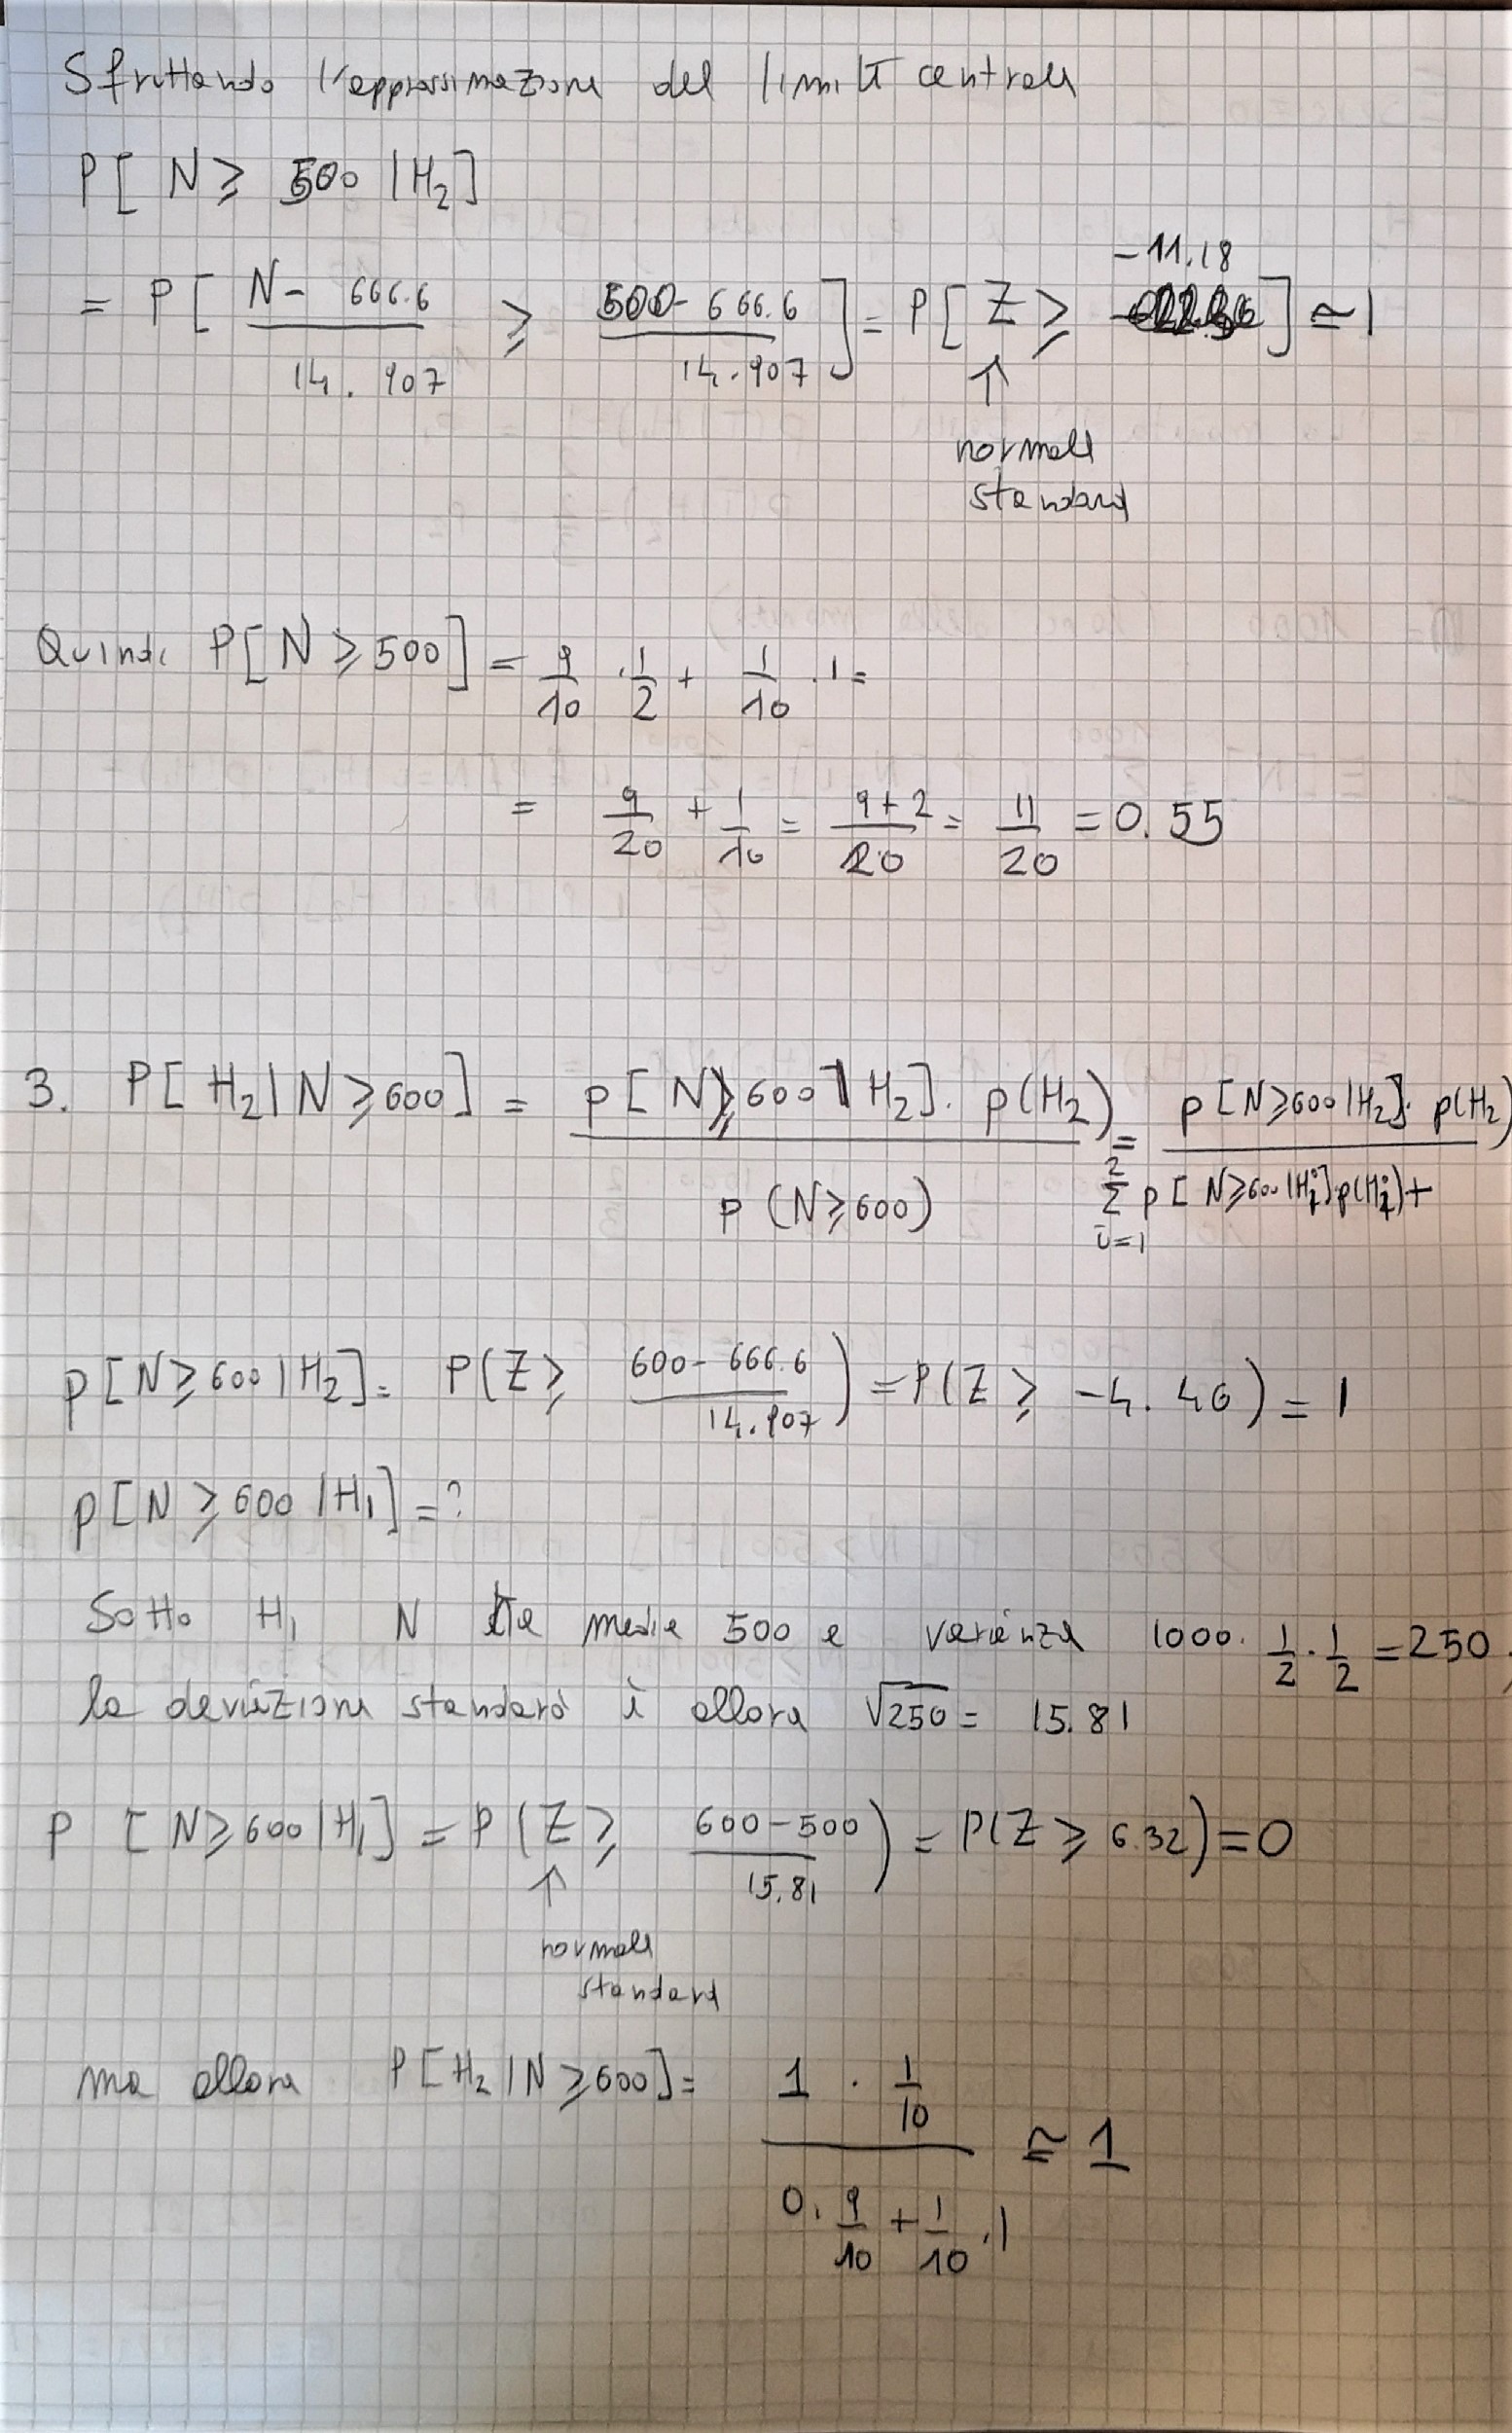 Sfruttando l'approssimazione del limite centrale
P[ N ≥ 500 | H₂]
= P[ (N - 666.6)/14.907 ≥ (500 - 666.6)/14.907 ] = P[ Z ≥ -11.18 ] ≃ 1
↑
normale
standard
Quindi P[ N ≥ 500 ] = 9/10 · 1/2 + 1/10 · 1 =
= 9/20 + 1/10 = (9+2)/20 = 11/20 = 0.55
3. P[ H₂ | N ≥ 600 ] = p[ N ≥ 600 | H₂] · p(H₂) / p(N ≥ 600) = p[N ≥ 600 | H₂] · p(H₂) / Σ_{i=1}^{2} p[ N ≥ 600 | Hᵢ] p(Hᵢ) +
p[N ≥ 600 | H₂] = P(Z ≥ (600 - 666.6)/14.907) = P(Z ≥ -4.46) = 1
p[N ≥ 600 | H₁] = ?
Sotto H₁ N ha media 500 e varianza 1000 · 1/2 · 1/2 = 250,
la deviazione standard è allora √250 = 15.81
P [N ≥ 600 | H₁] = P (Z ≥ (600 - 500)/15.81) = P(Z ≥ 6.32) = 0
↑
normale
standard
ma allora P[H₂ | N ≥ 600] = (1 · 1/10) / (0 · 9/10 + 1/10 · 1) ≅ 1